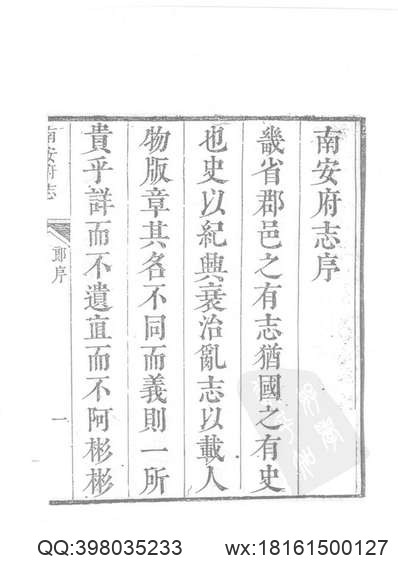 南安府志序
畿省郡邑之有志猶國之有史
也史以紀興衰治亂志以載人
物版章其名不同而義則一所
貴乎詳而不遺直而不阿彬彬
南安府志
郎序
一
QQ:398035233 wx:18161500127